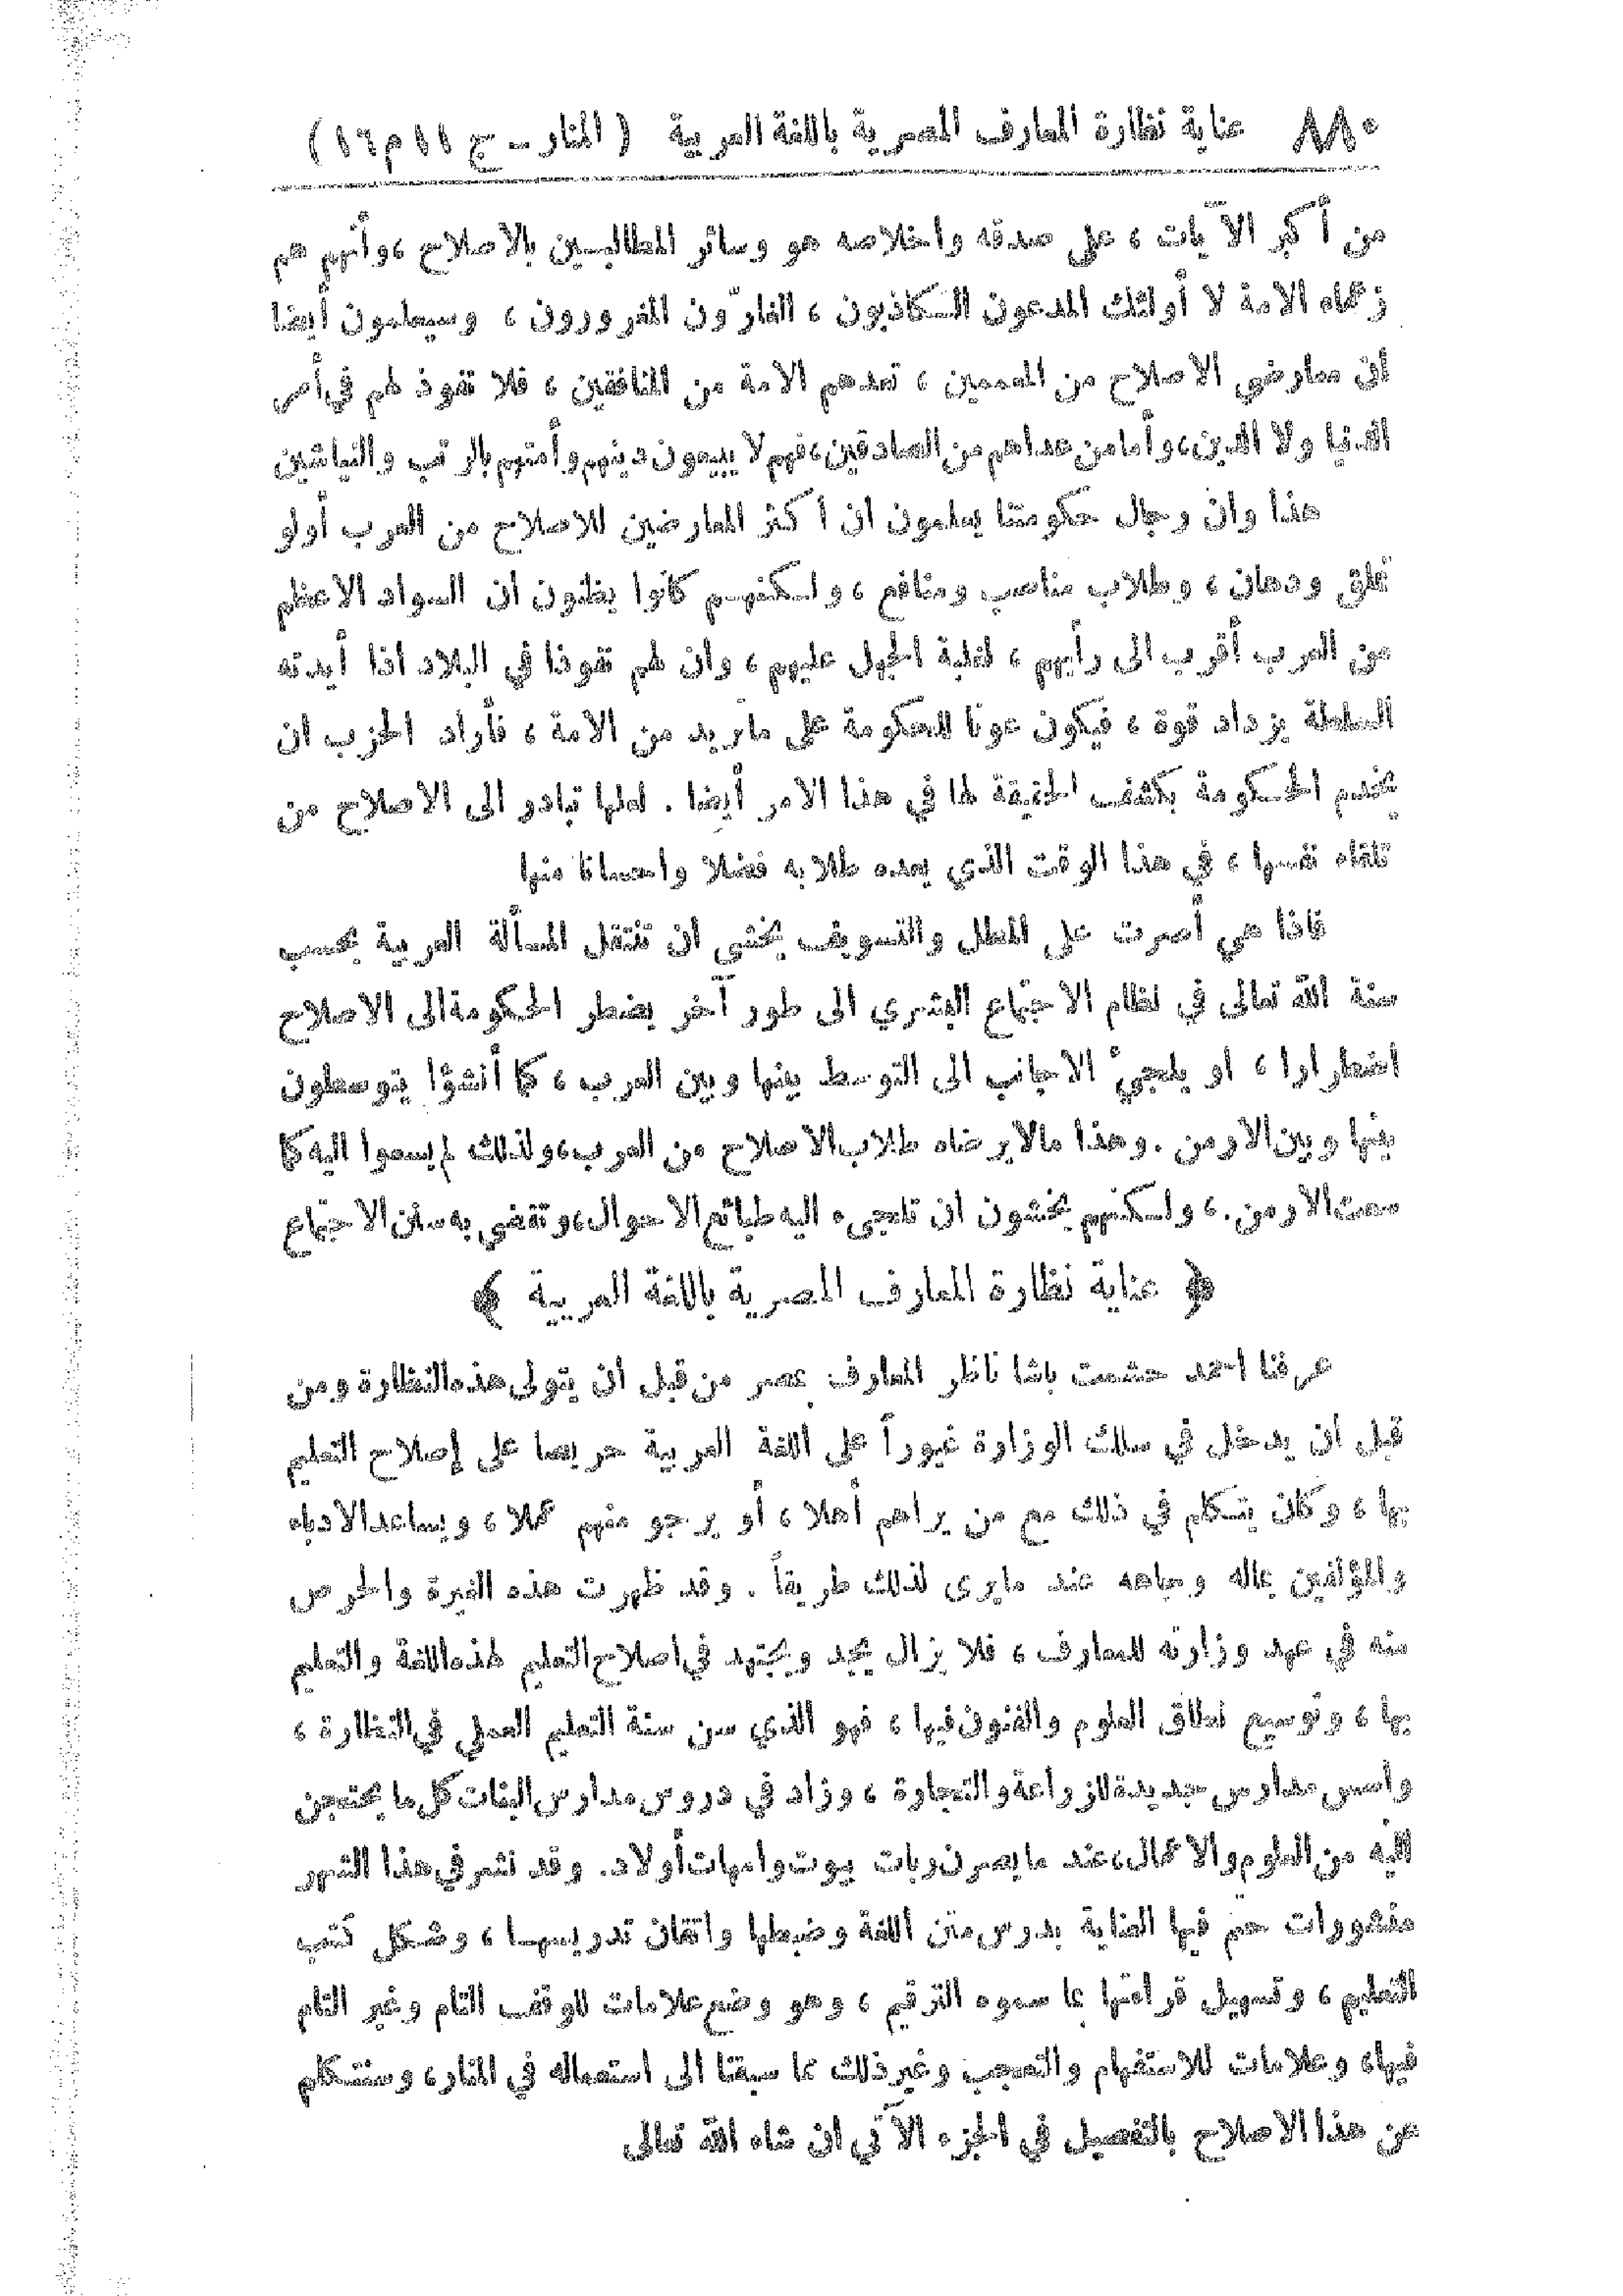 ٨٨٠ عناية نظارة المعارف المصرية باللغة العربية ( المنار – ج ١١ م ١٦ )
من أكبر الآيات ، على صدقه واخلاصه هو وسائر المطالبين بالاصلاح ،وأنهم هم
زعماء الامة لا أولئك المدعون الكاذبون ، الغارّون المغرورون ، وسيعلمون أيضا
ان معارضي الاصلاح من المعممين ، تعدهم الامة من المنافقين ، فلا نفوذ لهم في أمر
الدنيا ولا الدين، وأما من عداهم من الصادقين، فهم لا يبيعون دينهم وأمتهم بالرتب والنياشين
هذا وان رجال حكومتنا يعلمون ان أكثر المعارضين للاصلاح من العرب أولو
تملق ودهان ، وطلاب مناصب ومنافع ، ولكنهم كانوا يظنون ان السواد الاعظم
من العرب أقرب الى رأيهم ، لغلبة الجهل عليهم ، وان لهم نفوذا في البلاد اذا أيدته
السلطة يزداد قوة ، فيكون عونا للحكومة على ماتريد من الامة ، فأراد الحزب ان
يخدم الحكومة بكشف الحقيقة لها في هذا الامر أيضا . لعلها تبادر الى الاصلاح من
تلقاء نفسها ، في هذا الوقت الذي يعده طلابه فضلا واحسانا منها
فاذا هي أصرت على المطل والتسويف يخشى ان تنتقل المسألة العربية بحسب
سنة الله تعالى في نظام الاجتماع البشري الى طور آخر يضطر الحكومة الى الاصلاح
اضطرارا ، او يلجئ الاجانب الى التوسط بينها وبين العرب ، كما أنشؤا يتوسطون
بينها وبين الارمن . وهذا مالا يرضاه طلاب الاصلاح من العرب، ولذلك لم يسعوا اليه كما
سعت الارمن. ، ولكنهم يخشون ان تلجىء اليه طبائع الاحوال، وتقضي به سنن الاجتماع
﴿ عناية نظارة المعارف المصرية باللغة العربية ﴾
عرفنا احمد حشمت باشا ناظر المعارف بمصر من قبل ان يتولى هذه النظارة ومن
قبل ان يدخل في سلك الوزارة غيوراً على اللغة العربية حريصا على إصلاح التعليم
بها ، وكان يتكلم في ذلك مع من يراهم أهلا ، أو يرجو منهم عملا ، ويساعد الادباء
والمؤلفين بماله وجاهه عند مايرى لذلك طريقاً . وقد ظهرت هذه الغيرة والحرص
منه في عهد وزارته للمعارف ، فلا يزال يجد ويجتهد في اصلاح التعليم لهذه اللغة والتعليم
بها ، وتوسيع نطاق العلوم والفنون فيها ، فهو الذي سن سنة التعليم العملي في النظارة ،
وأسس مدارس جديدة للزراعة والتجارة ، وزاد في دروس مدارس البنات كل ما يحتجن
اليه من العلوم والاعمال، عند ما يصرن ربات بيوت وامهات أولاد. وقد نشر في هذا الشهر
منشورات حتم فيها العناية بدرس متن اللغة وضبطها واتقان تدريسها ، وشكل كتب
التعليم ، وتسهيل قراءتها بما سموه الترقيم ، وهو وضع علامات للوقف التام وغير التام
فيها، وعلامات للاستفهام والتعجب وغير ذلك مما سبقنا الى استعماله في المنار، وسنتكلم
عن هذا الاصلاح بالتفصيل في الجزء الآتي ان شاء الله تعالى